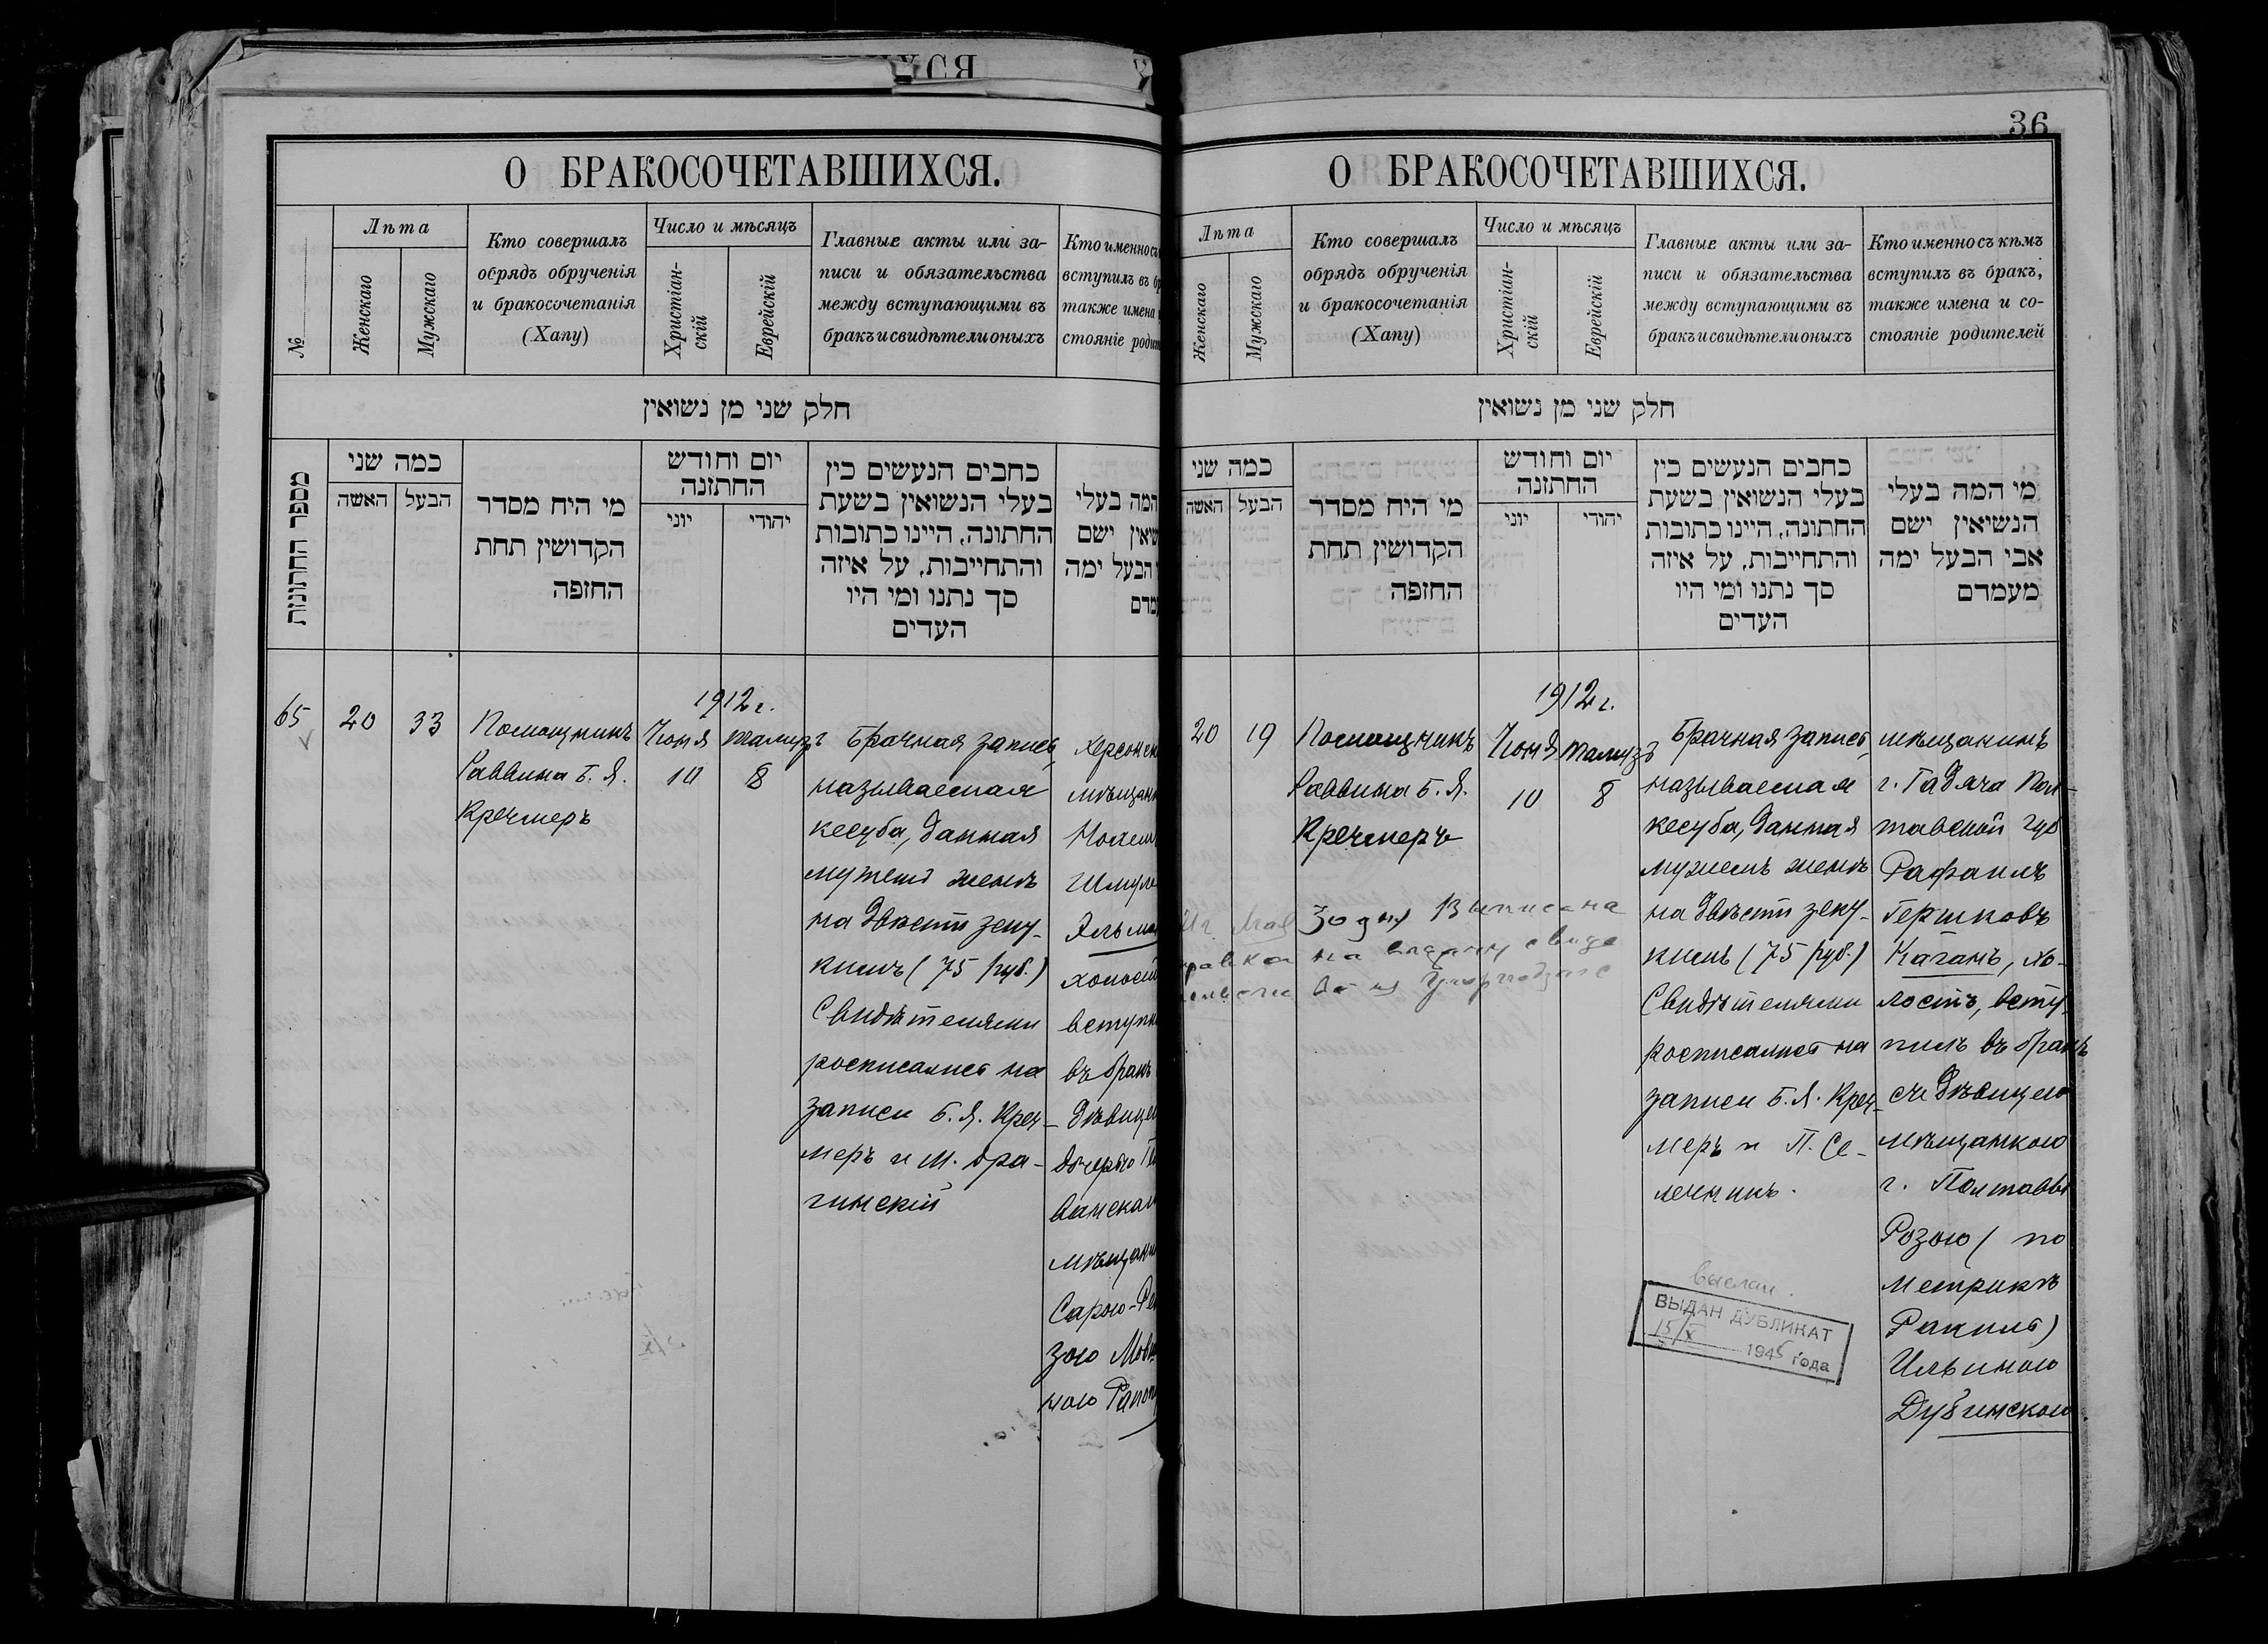 36
О БРАКОСОЧЕТАВШИХСЯ.
№
Лѣта
Женскаго
Мужскаго
Кто совершалъ
обрядъ обрученія
и бракосочетанія
(Хапу)
Число и мѣсяцъ
Христіан-
скій
Еврейскій
Главные акты или за-
писи и обязательства
между вступающими въ
бракъ и свидѣтели оныхъ
Кто именно съ
вступилъ въ
также имена
стояніе
חלק שני מן נשואין
מספר החתונות
כמה שני
האשה
הבעל
מי היח מסדר
הקדושין תחת
החזפה
יום וחודש
החתזנה
יוני
יהודי
כחבים הנעשים כין
בעלי הנשואין בשעת
החתונה, היינו כתובות
והתחייבות, על איזה
סך נתנו ומי היו
העדים
המה בעלי
ישם
הבעל ימה
65
20
33
Помощникъ
Раввина Б. Я.
Кречмеръ
1912 г.
Іюня
10
тамузъ
8
Брачная запись,
называемая
кесуба, данная
мужемъ женѣ
на двѣсти зеку-
кимъ (75 руб.)
Свидѣтелями
росписались на
записи Б. Я. Креч-
меръ и М. Бра-
гинскій
вступи
въ бракъ
Сарою-
зою
ною
О БРАКОСОЧЕТАВШИХСЯ.
Лѣта
Женскаго
Мужскаго
Кто совершалъ
обрядъ обрученія
и бракосочетанія
(Хапу)
Число и мѣсяцъ
Христіан-
скій
Еврейскій
Главные акты или за-
писи и обязательства
между вступающими въ
бракъ и свидѣтели оныхъ
Кто именно съ кѣмъ
вступилъ въ бракъ,
также имена и со-
стояніе родителей
חלק שני מן נשואין
כמה שני
האשה
הבעל
מי היח מסדר
הקדושין תחת
החזפה
יום וחודש
החתזנה
יוני
יהודי
כחבים הנעשים כין
בעלי הנשואין בשעת
החתונה, היינו כתובות
והתחייבות, על איזה
סך נתנו ומי היו
העדים
מי המה בעלי
הנשיאין ישם
אבי הבעל ימה
מעמדם
20
19
Помощникъ
Раввина Б. Я.
Кречмеръ
1912 г.
Іюня
10
тамузъ
8
Брачная запись,
называемая
кесуба, данная
мужемъ женѣ
на двѣсти зеку-
кимъ (75 руб.)
Свидѣтелями
росписались на
записи Б. Я. Креч-
меръ и П. Се-
лечникъ.
мѣщанинъ
г. Гадяча Пол-
тавской губ
Рафаилъ
Гершковъ
Каганъ, хо-
лостъ, всту-
пилъ въ бракъ
съ дѣвицею
мѣщанкою
г. Полтавы
Розою (по
метрикѣ
Рахиль)
Ильиною
Дубинскою
выслан.
ВЫДАН ДУБЛИКАТ
15/X 1945 года